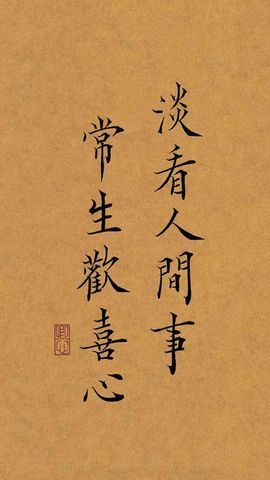 淡看人間事
常生歡喜心